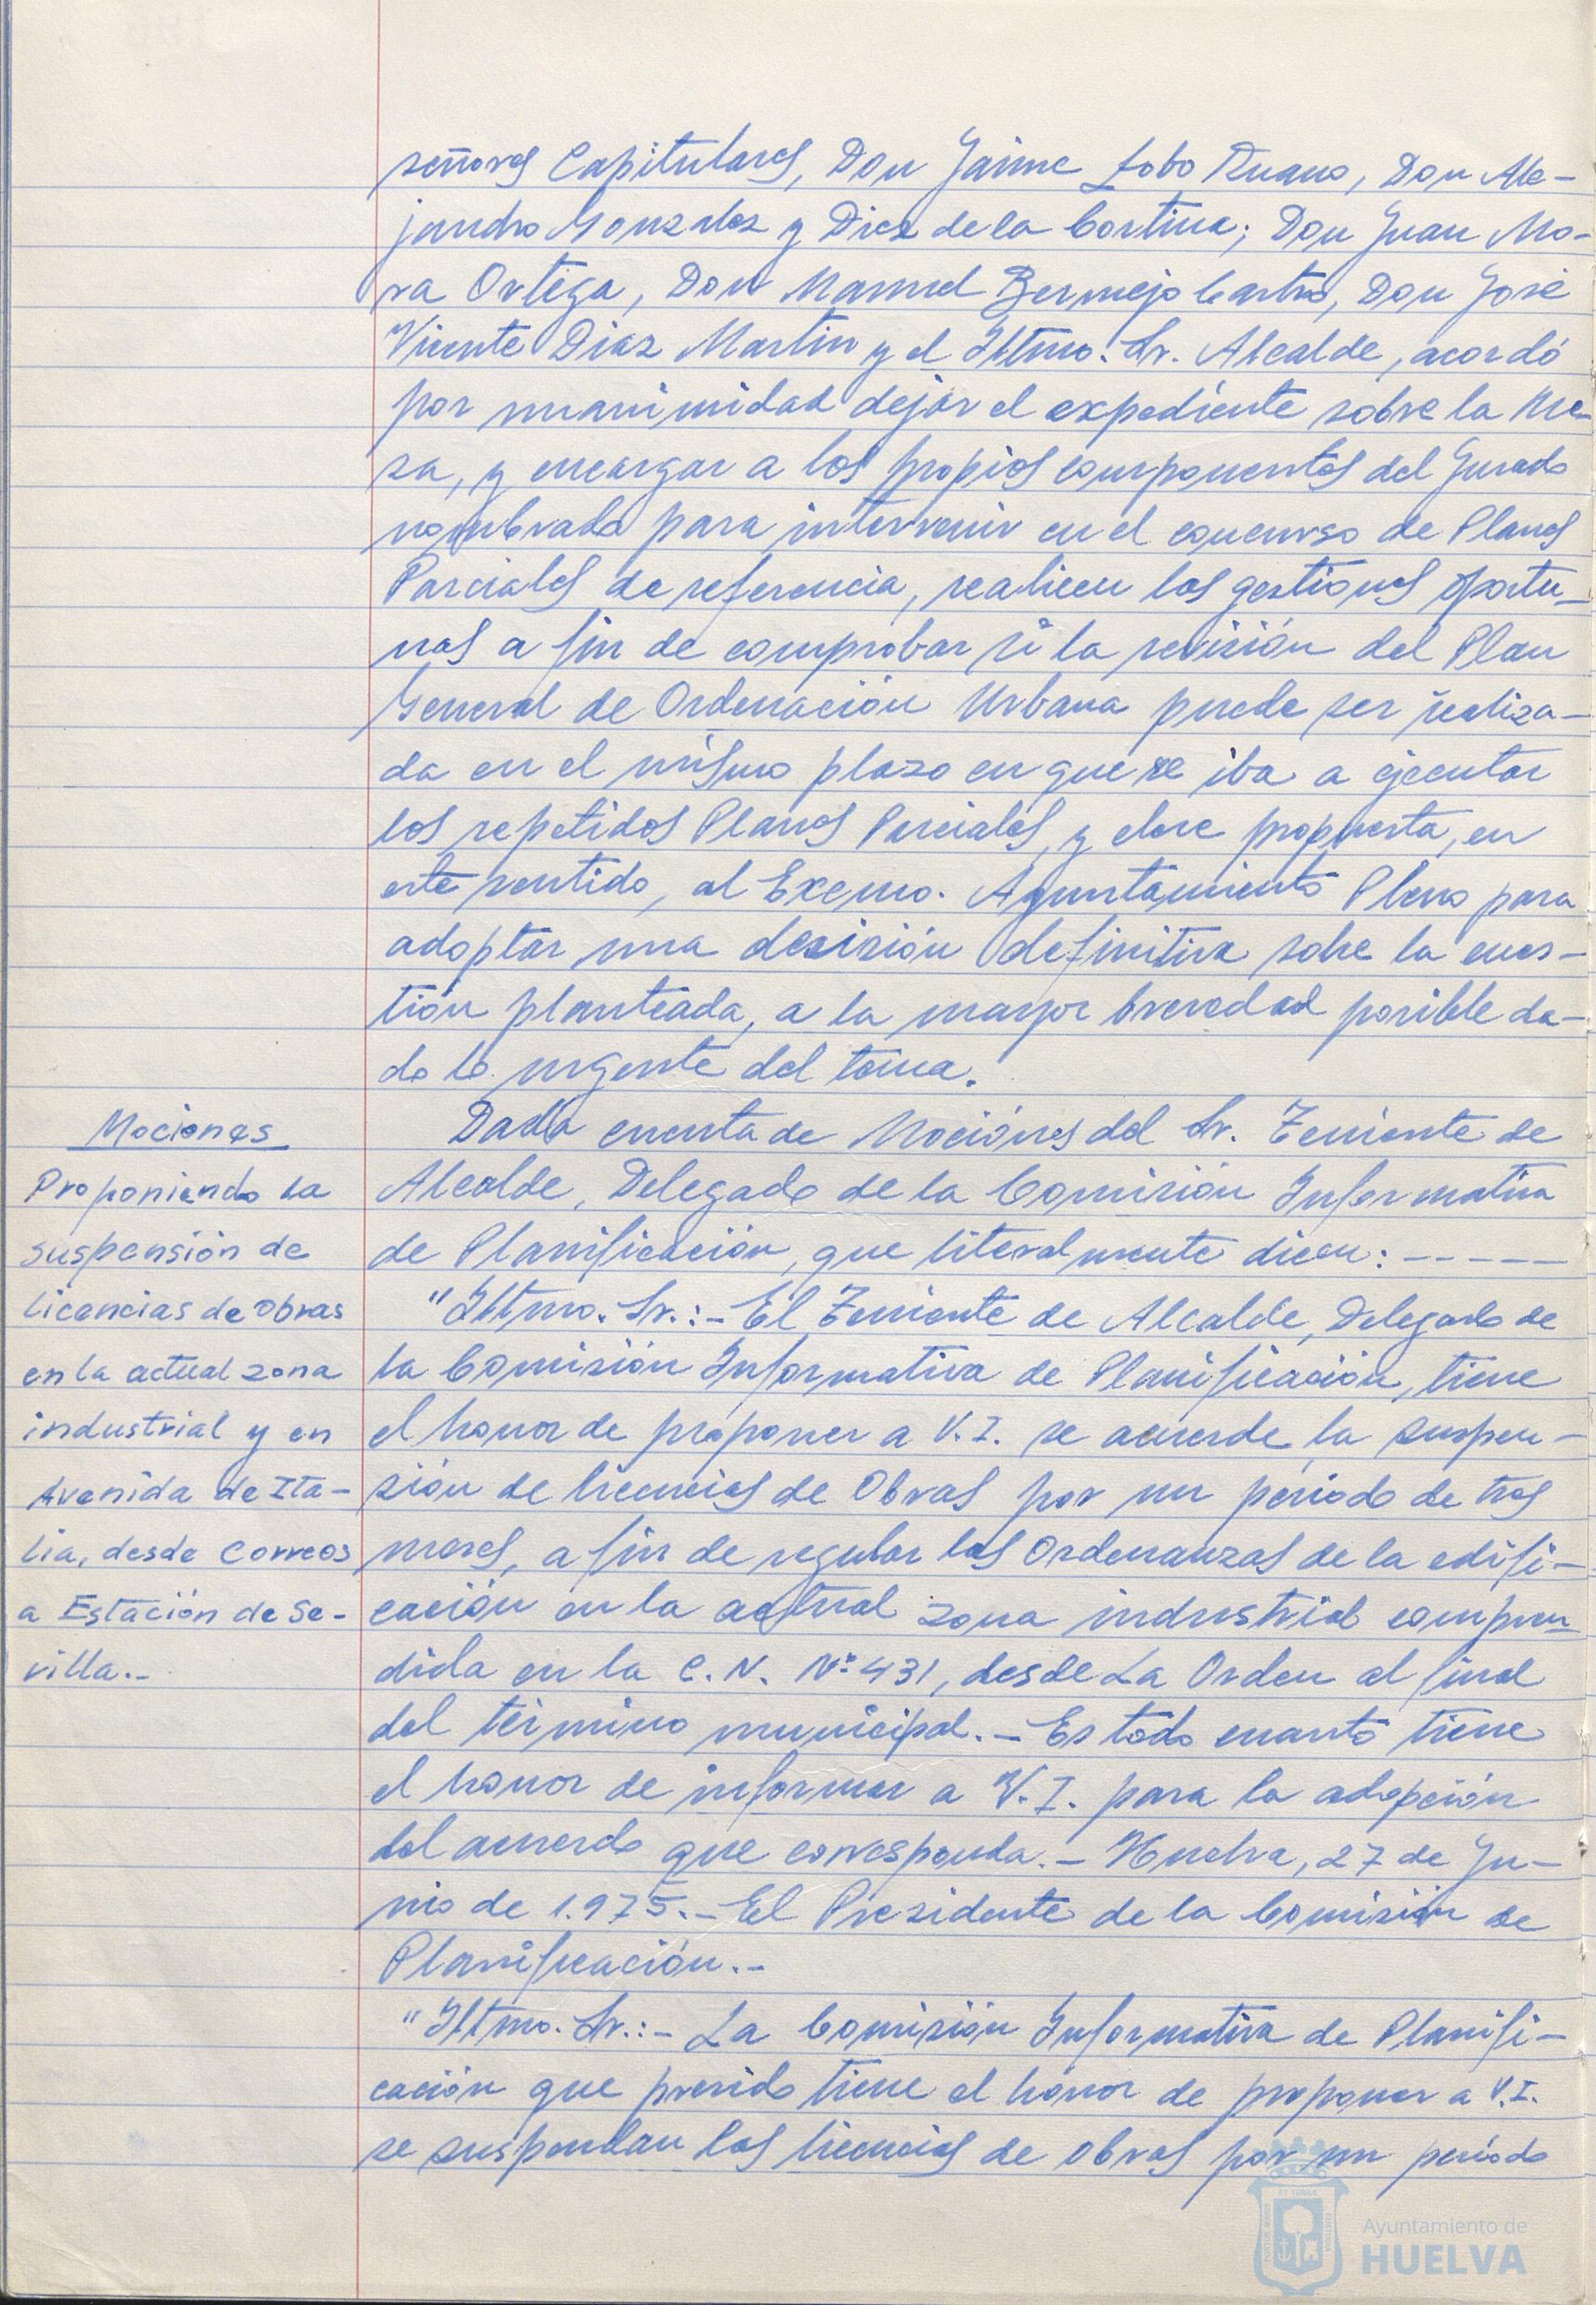 señores Capitulares, Don Jaime Lobo Ruano, Don Ale-
jandro Gonzalez y Diez de la Cortina; Don Juan Mo-
ra Ortega, Don Manuel Bermejo Castro, Don José
Vicente Diaz Martin y el Iltmo. Sr. Alcalde, acordó
por unanimidad dejar el expediente sobre la Me-
sa, y encargar a los propios componentes del Jurado
nombrado para intervenir en el concurso de Planes
Parciales de referencia, realicen las gestiones oportu-
nas a fin de comprobar si la revisión del Plan
General de Ordenación Urbana puede ser realiza-
da en el mismo plazo en que se iba a ejecutar
los repetidos Planes Parciales, y eleve propuesta, en
este sentido, al Excmo. Ayuntamiento Pleno para
adoptar una decisión definitiva sobre la cues-
tión planteada, a la mayor brevedad posible da-
do lo urgente del tema.
Mociones
Proponiendo la
suspensión de
licencias de obras
en la actual zona
industrial y en
Avenida de Ita-
lia, desde Correos
a Estación de Se-
villa.-
Dada cuenta de Mociones del Sr. Teniente de
Alcalde, Delegado de la Comisión Informativa
de Planificación, que literalmente dicen: -----
"Iltmo. Sr.:- El Teniente de Alcalde, Delegado de
la Comisión Informativa de Planificación, tiene
el honor de proponer a V.I. se acuerde la suspen-
sión de licencias de Obras por un periodo de tres
meses, a fin de regular las Ordenanzas de la edifi-
cación en la actual zona industrial compren-
dida en la C.N. Nº 431, desde La Orden al final
del término municipal.- Es todo cuanto tiene
el honor de informar a V.I. para la adopción
del acuerdo que corresponda.- Huelva, 27 de Ju-
nio de 1.975.- El Presidente de la Comisión de
Planificación.-
"Iltmo. Sr.:- La Comisión Informativa de Planifi-
cación que presido tiene el honor de proponer a V.I.
se suspendan las licencias de obras por un periodo
Ayuntamiento de
HUELVA